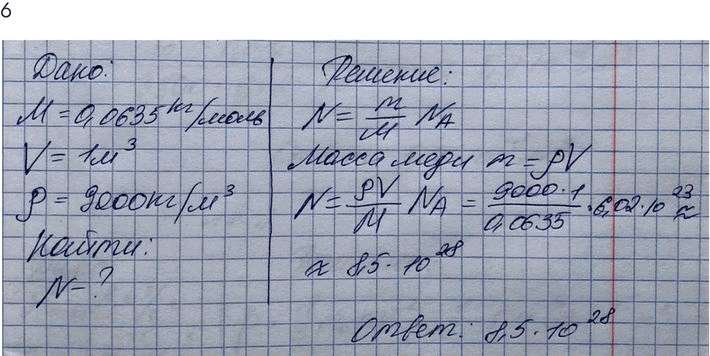 6
Дано:
M = 0,0635 кг/моль
V = 1м³
ρ = 9000кг/м³
Найти:
N - ?
Решение:
N = m/M N_A
Масса меди m = ρV
N = ρV/M N_A = 9000·1/0,0635 · 6,02·10²³ ≈
≈ 8,5·10²⁸
Ответ: 8,5·10²⁸